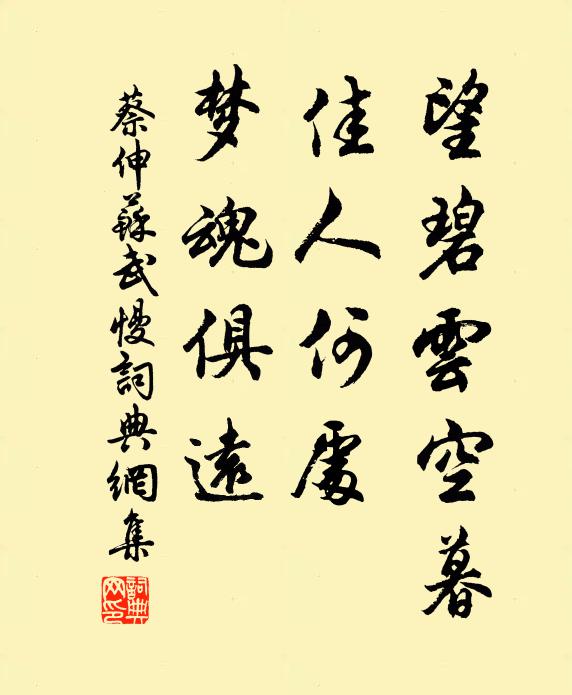 望碧雲空暮
佳人何處
梦魂俱遠
蔡伸蘇武慢詞典網集
詞典网印